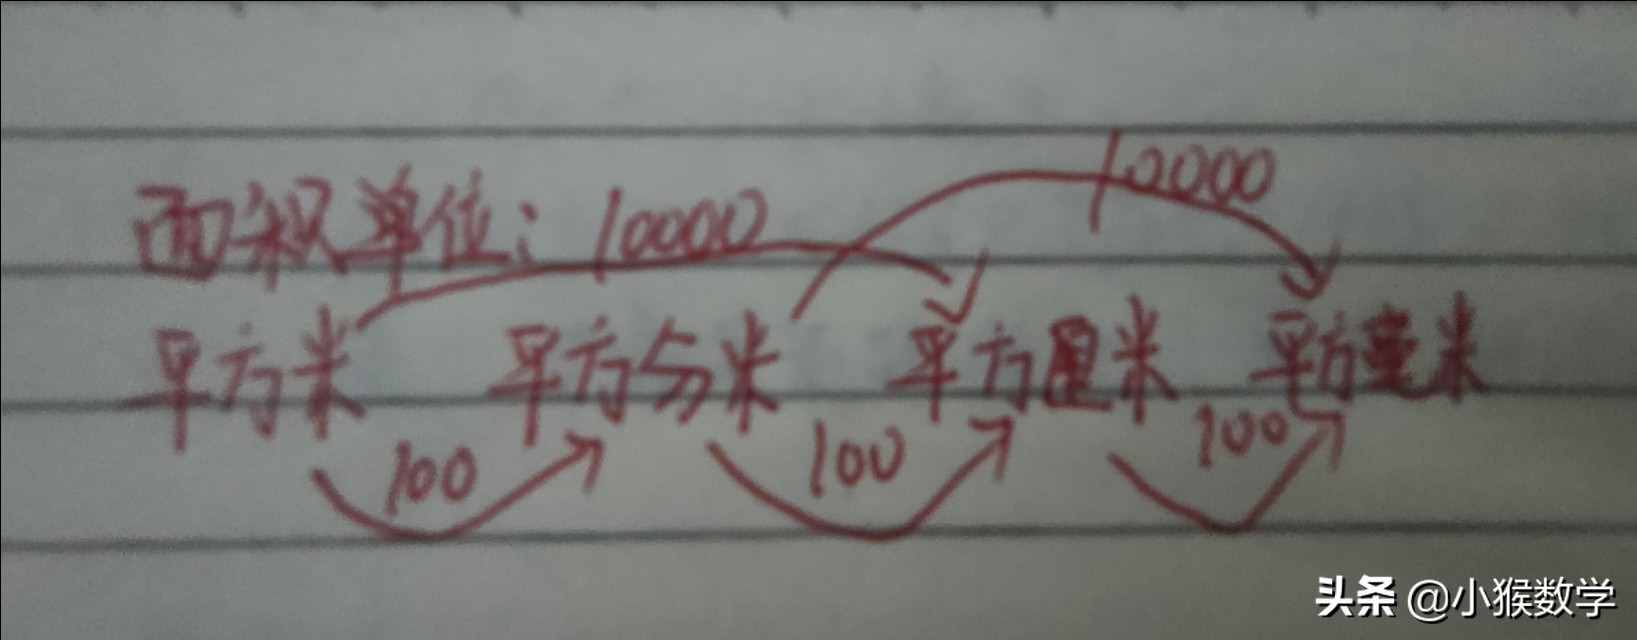 面积单位: 10000 10000
平方米 平方分米 平方厘米 平方毫米
100 100 100
头条 @小猴数学